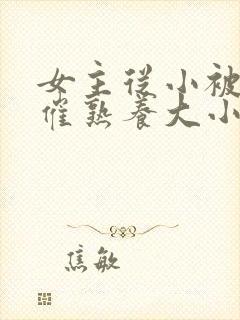 女主从小被
催熟养大小
焦敏